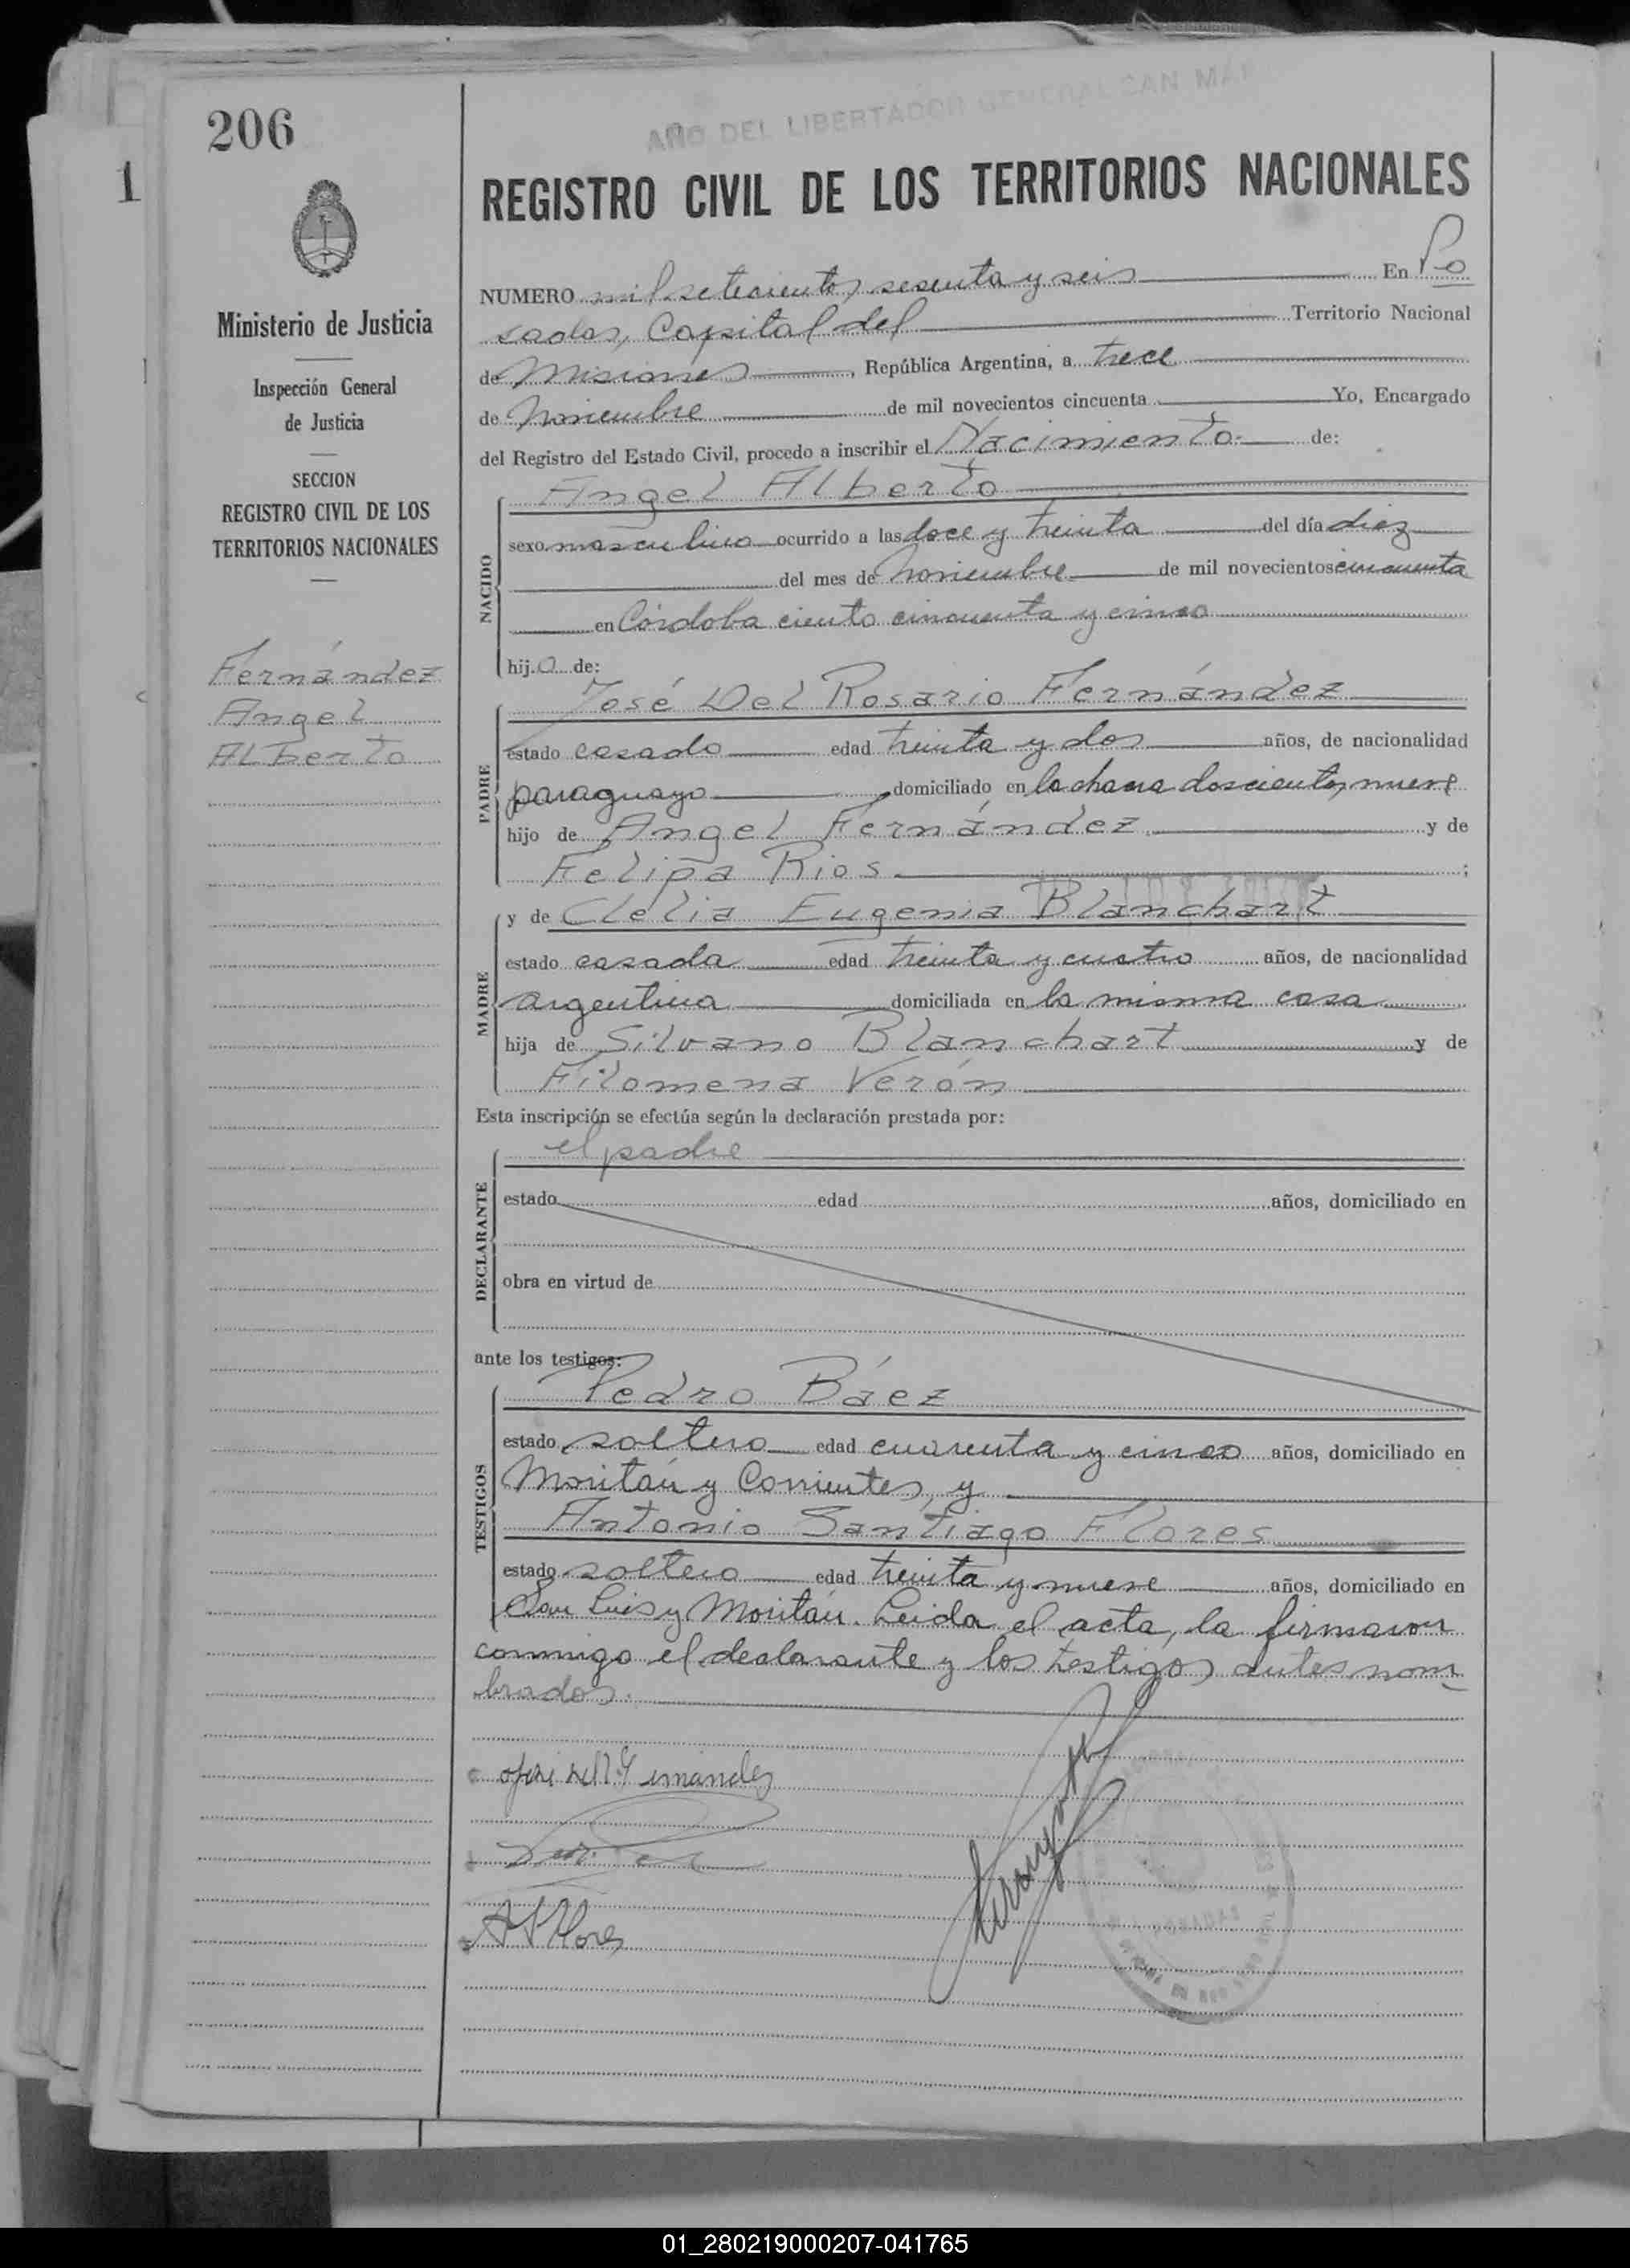 AÑO DEL LIBERTADOR GENERAL SAN MAR
206
1
Ministerio de Justicia
Inspección General
de Justicia
SECCION
REGISTRO CIVIL DE LOS
TERRITORIOS NACIONALES
Fernández
Angel
Alberto
REGISTRO CIVIL DE LOS TERRITORIOS NACIONALES
NUMERO mil setecientos sesenta y seis En Po
sadas, Capital del Territorio Nacional
de Misiones, República Argentina, a trece
de Noviembre de mil novecientos cincuenta Yo, Encargado
del Registro del Estado Civil, procedo a inscribir el Nacimiento de:
NACIDO
Angel Alberto
sexo masculino ocurrido a las doce y treinta del día diez
del mes de Noviembre de mil novecientos cincuenta
en Córdoba ciento cincuenta y cinco
hijo de:
PADRE
José Del Rosario Fernández
estado casado edad treinta y dos años, de nacionalidad
paraguayo, domiciliado en la chacra doscientos nueve
hijo de Angel Fernández y de
Felipa Rios;
MADRE
y de Clelia Eugenia Blanchart
estado casada edad treinta y cuatro años, de nacionalidad
argentina domiciliada en la misma casa
hija de Silvano Blanchart y de
Filomena Verón
Esta inscripción se efectúa según la declaración prestada por:
DECLARANTE
el padre
estado edad años, domiciliado en
obra en virtud de
ante los testigos:
TESTIGOS
Pedro Báez
estado soltero edad cuarenta y cinco años, domiciliado en
Moritán y Corrientes, y
Antonio Santiago Flores
estado soltero edad treinta y nueve años, domiciliado en
San Luis y Moritán. Leida el acta, la firmaron
conmigo el declarante y los testigos antes nom
brados.
A S Flores
01_280219000207-041765